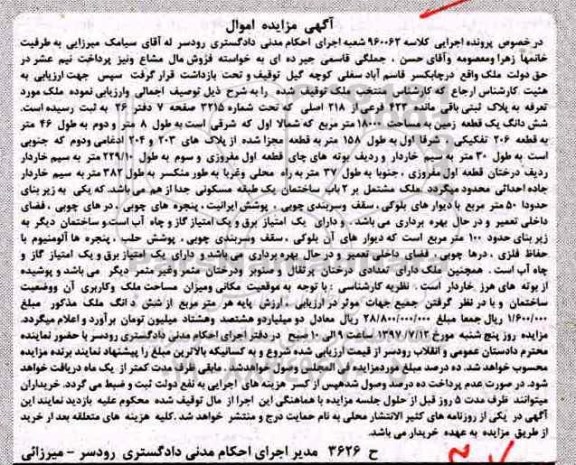 آگهی مزایده اموال
در خصوص پرونده اجرایی کلاسه ۹۶۰۰۶۲ شعبه اجرای احکام مدنی دادگستری رودسر له آقای سیامک میرزایی به طرفیت
خانمها زهرا ومعصومه وآقای حسن ، جملگی قاسمی جیرده ای به خواسته فروش مال مشاع ونیز پرداخت نیم عشر در
حق دولت ملک واقع درچابکسر قاسم آباد سفلی کوچه گیل توقیف و تحت بازداشت قرار گرفت سپس جهت ارزیابی به
هیئت کارشناس ارجاع که کارشناسان منتخب ملک توقیف شده را به شرح ذیل توصیف اجمالی وارزیابی نموده ملک مورد
تعرفه به پلاک ثبتی باقی مانده ۴۲۳ فرعی از ۲۱۸ اصلی که تحت شماره ۳۲۱۵ صفحه ۷ دفتر ۲۶ به ثبت رسیده است.
شش دانگ یک قطعه زمین به مساحت ۱۸۰۰۰ متر مربع که شمالا اول که شرقی است به طول ۸ متر و دوم به طول ۴۶ متر
به قطعه ۲۰۶ تفکیکی ، شرقا اول به طول ۱۵۸ متر به قطعه مجزا شده از پلاک های ۲۰۳ و ۲۰۴ ادغامی ودوم که جنوبی
است به طول ۳۰ متر به سیم خاردار و ردیف بوته های چای قطعه اول مفروزی و سوم به طول ۲۲۹/۱۰ متر به سیم خاردار
ردیف درختان قطعه اول مفروزی ، جنوبا به طول ۳۷ متر به راه محلی وغربا به طور متکسر به طول ۳۸۲ متر به سیم خاردار
جاده احداثی محدود میگردد .ملک مشتمل بر ۲ باب ساختمان یک طبقه مسکونی جدا از هم می باشد که یکی به زیر بنای
حدودا ۵۰ متر مربع با دیوار های بلوکی ، سقف وسربندی چوبی ، پوشش ایرانیت ، پنجره های چوبی ، در های چوبی ، فضای
داخلی تعمیر و در حال بهره برداری می باشد . دارای یک امتیاز برق و یک امتیاز گاز و چاه آب است.و ساختمان دیگر به
زیر بنای حدود ۱۰۰ متر مربع است که دیوار های آن بلوکی ، سقف وسربندی چوبی ، پوشش حلب ، پنجره ها آلومنیوم با
حفاظ فلزی ، درها چوبی ، فضای داخلی تعمیر و در حال بهره برداری می باشد و دارای یک امتیاز برق و یک امتیاز گاز و
چاه آب است . همچنین ملک دارای تعدادی درختان پرتقال ، صنوبر ودرختان مثمر وغیر مثمر دیگر می باشد و پوشیده
از بوته های هرز خاردار است . نظریه کارشناسی : با توجه به موقعیت مکانی ومیزان مساحت ملک وکاربری آن ووضعیت
ساختمان و با در نظر گرفتن جمیع جهات موثر در ارزیابی ، ارزش پایه هر متر مربع از شش دانگ ملک مذکور مبلغ
۱/۶۰۰/۰۰۰ ریال جمعا مبلغ ۲۸/۸۰۰/۰۰۰/۰۰۰ ریال معادل دو میلیاردو هشتصد وهشتاد میلیون تومان برآورد و اعلام میگردد.
مزایده روز پنج شنبه مورخ ۱۳۹۷/۷/۱۲ ساعت ۹ الی ۱۰ صبح در دفتر اجرای احکام مدنی دادگستری رودسر با حضور نماینده
محترم دادستان عمومی و انقلاب رودسر از قیمت ارزیابی شده شروع و به کسانیکه بالاترین مبلغ را پیشنهاد نمایند برنده مزایده
محسوب خواهد شد. ده درصد مبلغ موردمزایده فی المجلس وصول خواهدشد . مابقی ظرف مدت کمتر از یک ماه دریافت خواهد
شود. در صورت عدم پرداخت ده درصد وصول شدهپس از کسر هزینه های اجرایی به نفع دولت ثبت و ضبط می گردد. خریداران
میتوانند ظرف مدت ۵ روز قبل از حلول جلسه مزایده با هماهنگی این اجرا از مال توقیف شده محکوم علیه بازدید نمایند این
آگهی در یکی از روزنامه های کثیر الانتشار محلی به نام حمایت درج و منتشر خواهد شد .کلیه هزینه های متعلقه بعد از خرید
از طریق مزایده به عهده خریدار می باشد.
ح ۳۶۲۶ مدیر اجرای احکام مدنی دادگستری رودسر - میرزائی